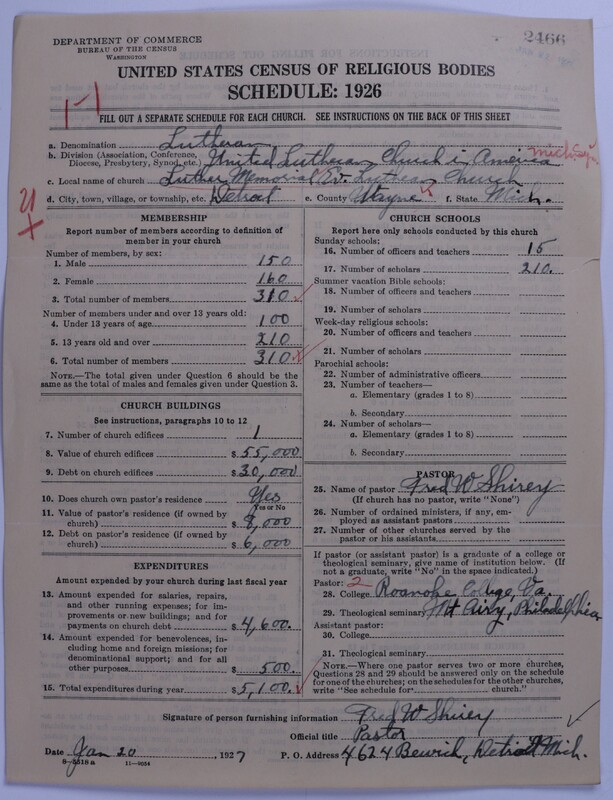 DEPARTMENT OF COMMERCE
BUREAU OF THE CENSUS
WASHINGTON
2466
UNITED STATES CENSUS OF RELIGIOUS BODIES
SCHEDULE: 1926
1-1
FILL OUT A SEPARATE SCHEDULE FOR EACH CHURCH. SEE INSTRUCTIONS ON THE BACK OF THIS SHEET
a. Denomination Lutheran
b. Division (Association, Conference, Diocese, Presbytery, Synod, etc.) United Lutheran Church in America Michigan
c. Local name of church Luther Memorial Ev. Lutheran Church
d. City, town, village, or township, etc. Detroit e. County Wayne f. State Mich.
MEMBERSHIP
Report number of members according to definition of
member in your church
Number of members, by sex:
1. Male 150
2. Female 160
3. Total number of members 310
Number of members under and over 13 years old:
4. Under 13 years of age 100
5. 13 years old and over 210
6. Total number of members 310
NOTE.—The total given under Question 6 should be the
same as the total of males and females given under Question 3.
CHURCH BUILDINGS
See instructions, paragraphs 10 to 12
7. Number of church edifices 1
8. Value of church edifices $55,000
9. Debt on church edifices $30,000
10. Does church own pastor's residence Yes
Yes or No
11. Value of pastor's residence (if owned by
church) $8,000
12. Debt on pastor's residence (if owned by
church) $6,000
EXPENDITURES
Amount expended by your church during last fiscal year
13. Amount expended for salaries, repairs,
and other running expenses; for im-
provements or new buildings; and for
payments on church debt $4,600.
14. Amount expended for benevolences, in-
cluding home and foreign missions; for
denominational support; and for all
other purposes $500.
15. Total expenditures during year $5,100.
CHURCH SCHOOLS
Report here only schools conducted by this church
Sunday schools:
16. Number of officers and teachers 15
17. Number of scholars 210.
Summer vacation Bible schools:
18. Number of officers and teachers
19. Number of scholars
Week-day religious schools:
20. Number of officers and teachers
21. Number of scholars
Parochial schools:
22. Number of administrative officers
23. Number of teachers—
a. Elementary (grades 1 to 8)
b. Secondary
24. Number of scholars—
a. Elementary (grades 1 to 8)
b. Secondary
PASTOR
25. Name of pastor Fred W Shirey
(If church has no pastor, write "None")
26. Number of ordained ministers, if any, em-
ployed as assistant pastors
27. Number of other churches served by the
pastor or his assistants
If pastor (or assistant pastor) is a graduate of a college or
theological seminary, give name of institution below. (If
not a graduate, write "No" in the space indicated.)
Pastor: 2
28. College Roanoke College, Va.
29. Theological seminary Mt Airy, Philadelphia
Assistant pastor:
30. College
31. Theological seminary
NOTE.—Where one pastor serves two or more churches,
Questions 28 and 29 should be answered only on the schedule
for one of the churches; on the schedules for the other churches,
write "See schedule for church."
Signature of person furnishing information Fred W Shirey
Official title Pastor
Date Jan 20, 1927 P. O. Address 4624 Bewick, Detroit Mich.
8-5518 a 11-9034